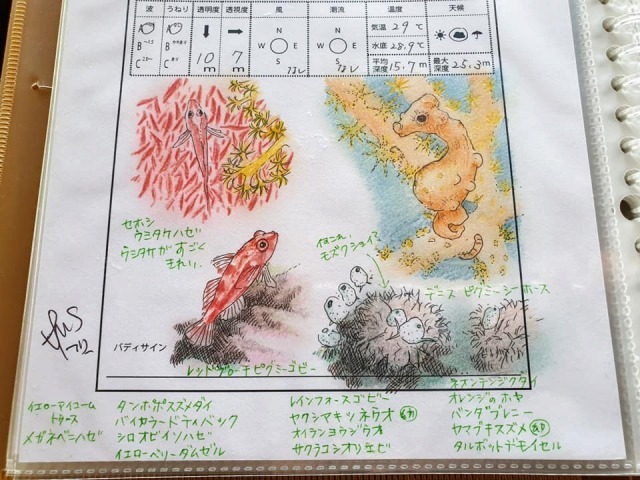 波 うねり 透明度 透視度 風 潮流 温度 天候
A B C A B C
10 m 7 m
N W E S なし
N W E S なし
気温 29 ℃
水底 28.9 ℃
平均深度 15.7 m
最大深度 25.3 m
セホシ
ウミタケハゼ
ウミタケがすごく
きれい、
なにこれ、
モズクショイ?
デニス ピグミーシーホース
バディサイン
レッドグローチピグミーゴビー
イエローアイコーム
トゥース
メガネベニハゼ
タンポポスズメダイ
バイカラードティバック
シロオビイソハゼ
イエローベリーダムゼル
レインフォースゴビー
ヤクシマキツネウオ 幼
オイランヨウジウオ
サクラコシオリエビ
ネオンテンジクダイ
オレンジのホヤ
パンダブレニー
ヤマブキスズメ 幼
タルボットデモイセル